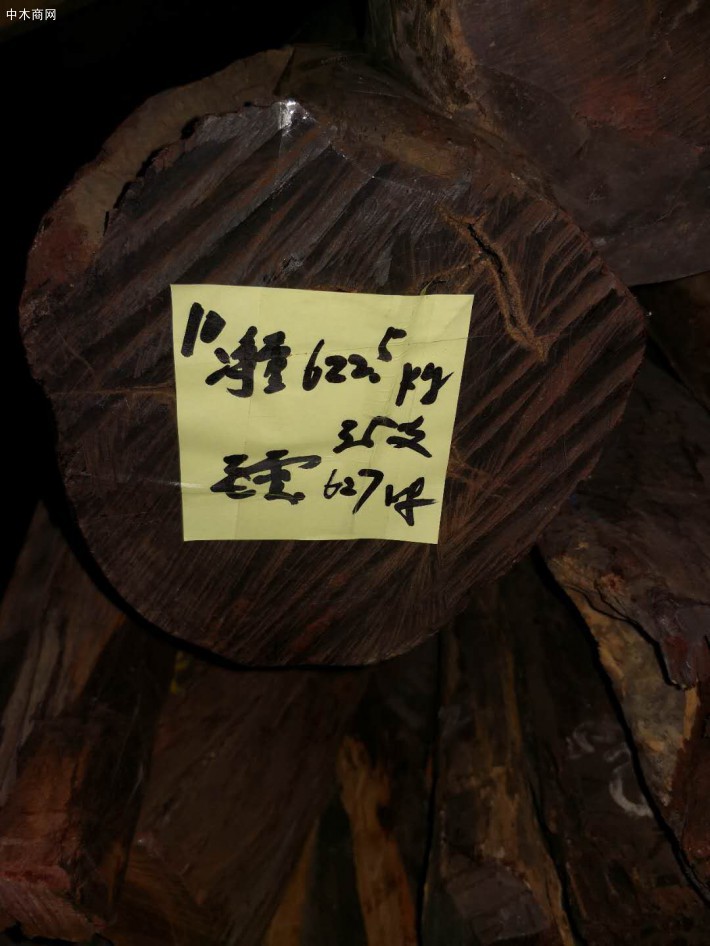 中木商网
10 净重 622.5 kg
35支
毛重 627 kg